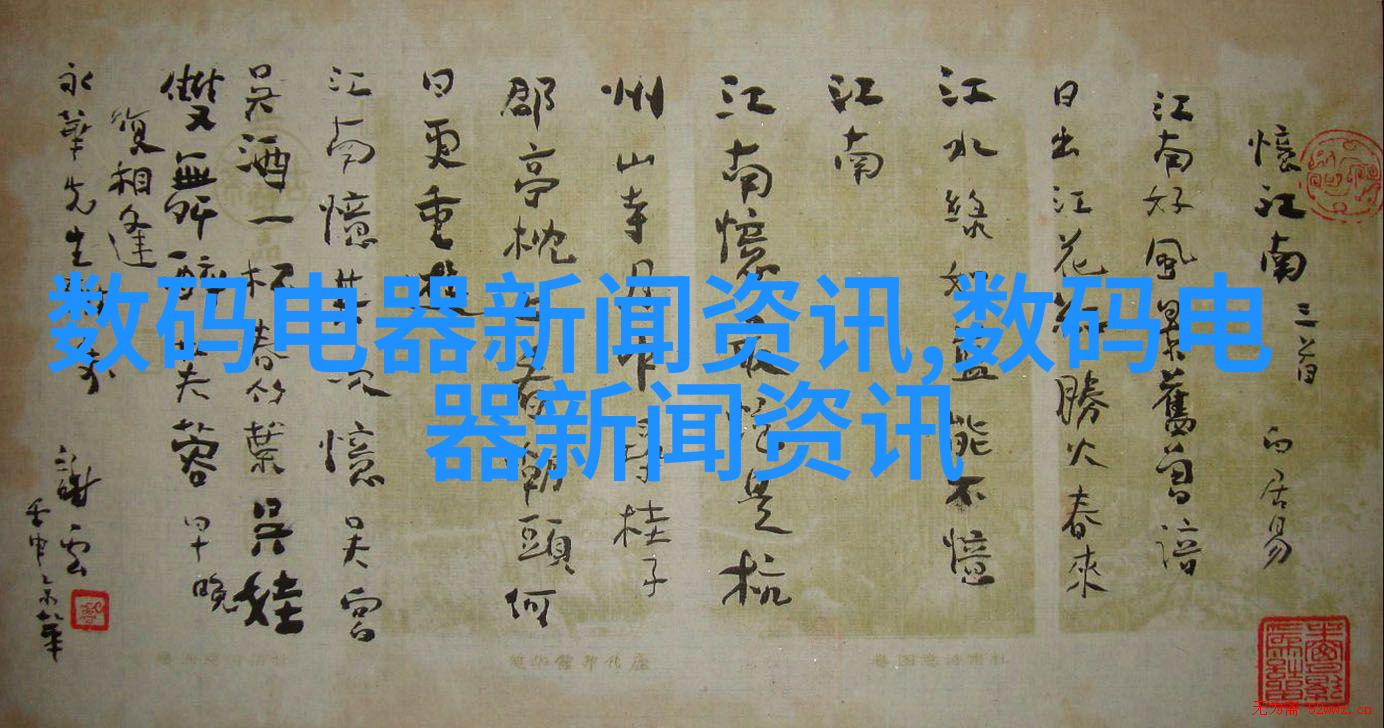 憶江南 三首 白居易
江南好風景舊曾諳
日出江花紅勝火春來
江水綠如藍能不憶
江南
江南憶最憶是杭
州山寺月中尋桂子
郡亭枕上看潮頭何
日更重遊
江南憶其次憶吳宮
吳酒一杯春竹葉吳娃
雙舞醉芙蓉早晚
復相逢
永華先生
謝雲
数码电器新闻资讯,数码电
器新闻资讯